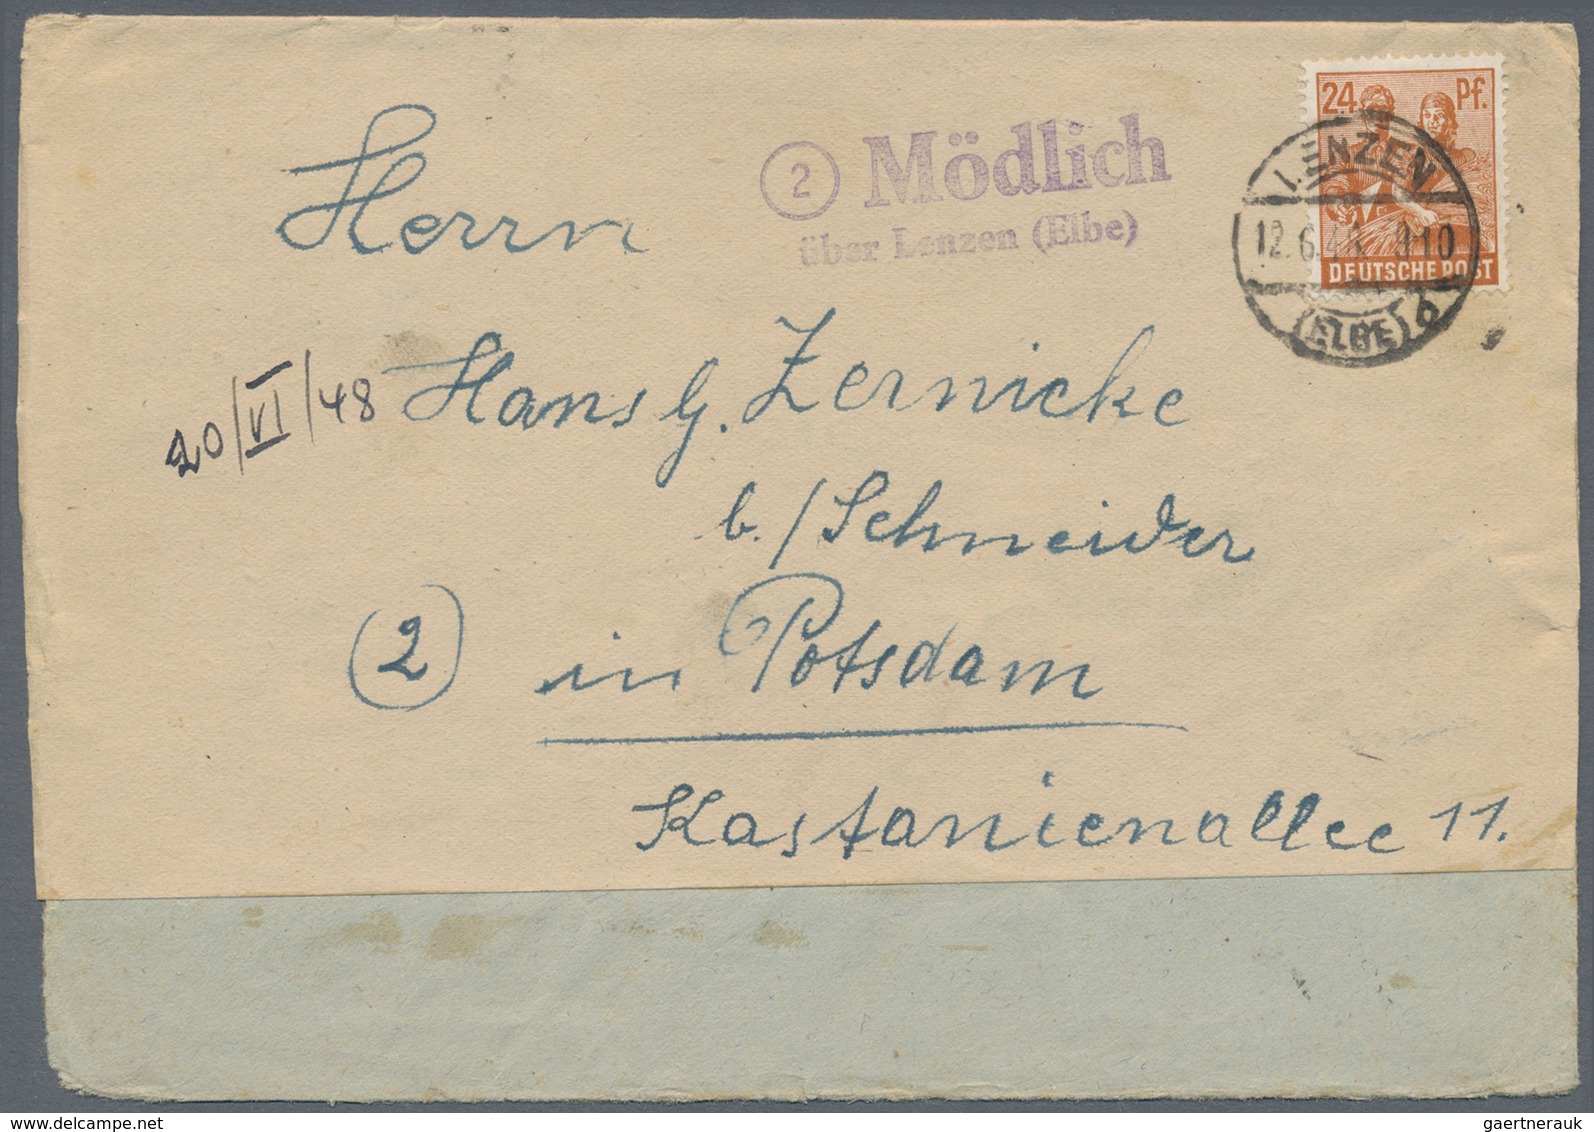 Herrn
2 Mödlich
über Lenzen (Elbe)
24 Pf.
DEUTSCHE POST
LENZEN
12.6.48. 9-10
(ELBE) d
20/VI/48
Hans G. Zernicke
b./Schneider
(2) in Potsdam
Kastanienallee 11.
gaertnerauk